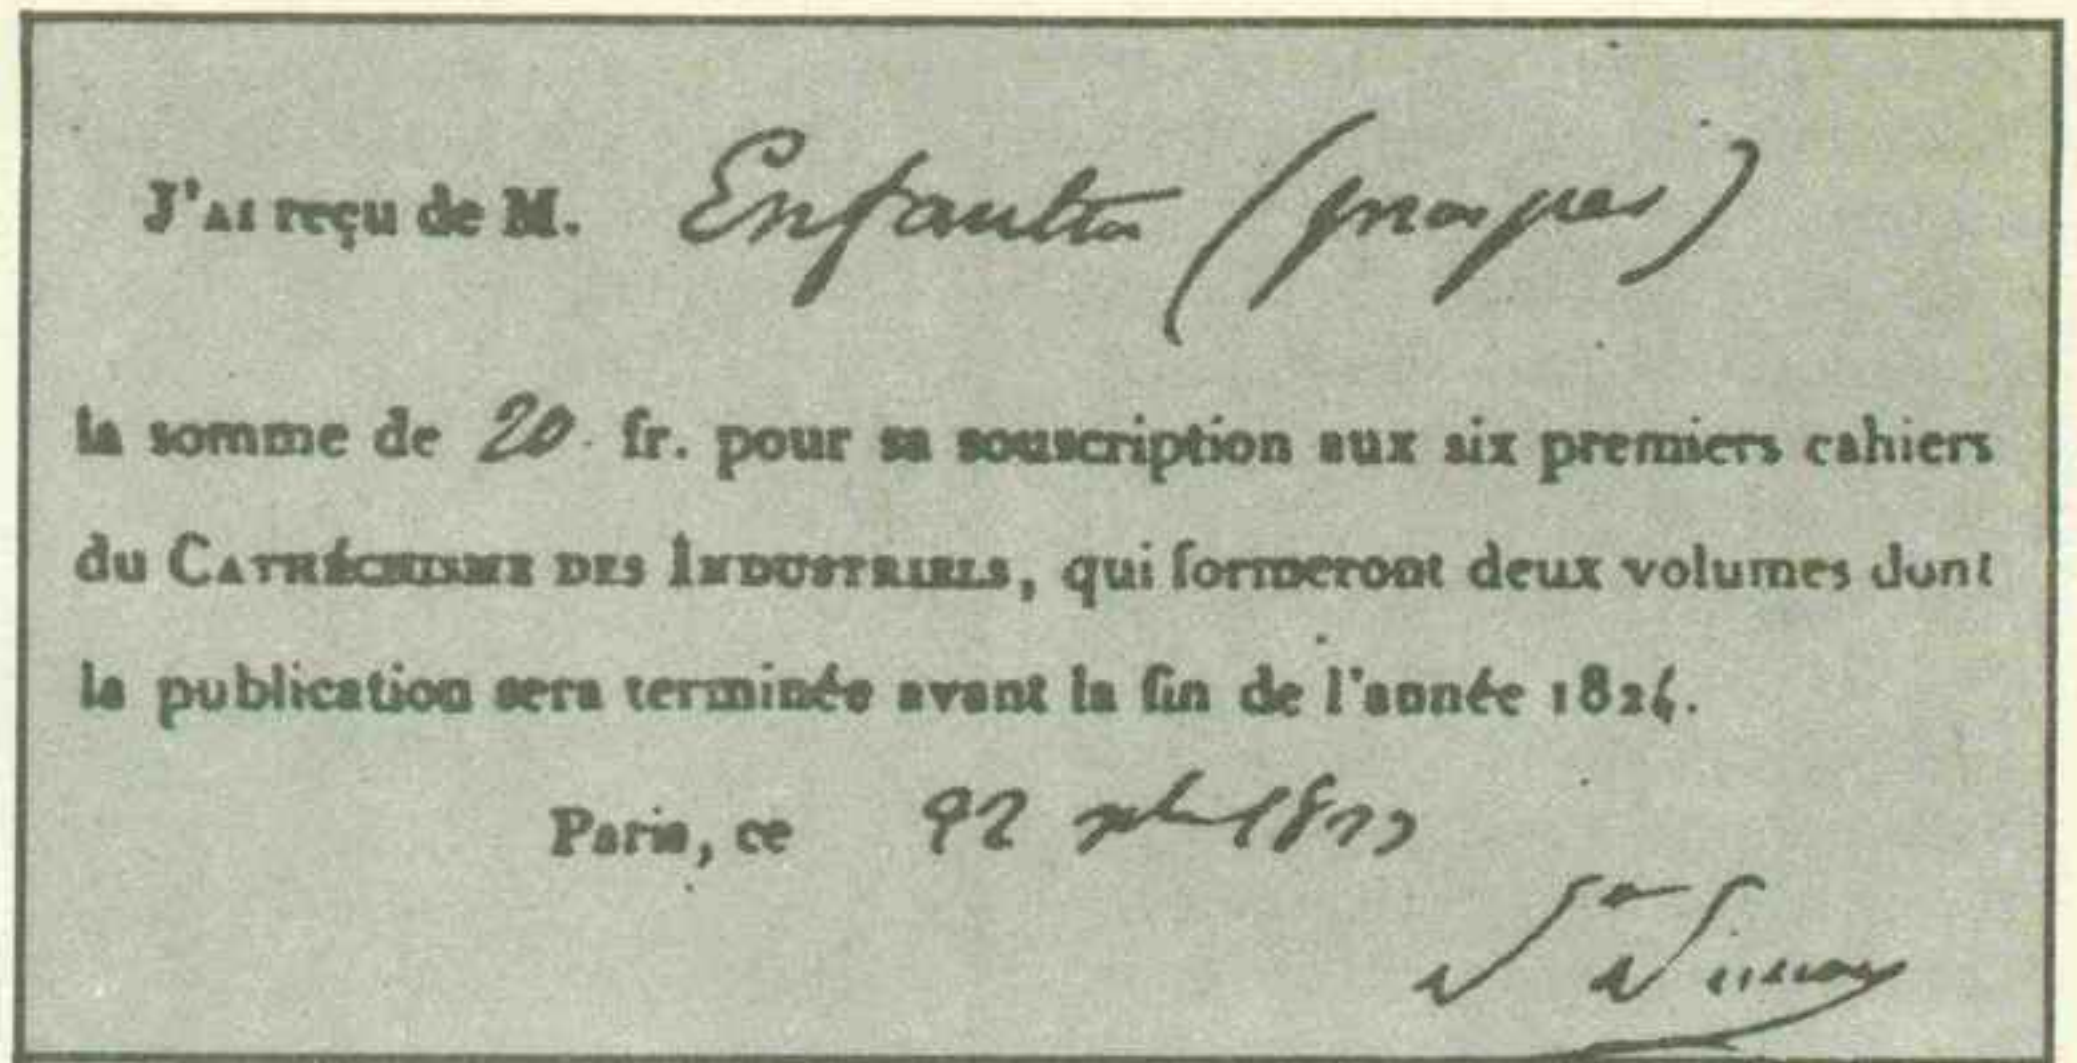 J'AI reçu de M. Enfantin (prosper)
la somme de 20 fr. pour sa souscription aux six premiers cahiers
du CATHÉCHISME DES INDUSTRIELS, qui formeront deux volumes dont
la publication sera terminée avant la fin de l'année 1824.
Paris, ce
St Simon